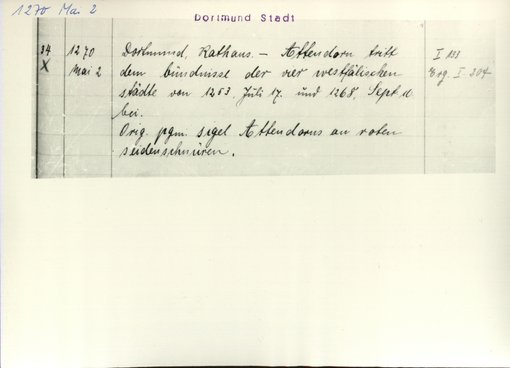 1270 Mai 2
Dortmund Stadt
34 1270 Dortmund, Rathaus. – Attendorn tritt I 133
X Mai 2 dem bündnisse der vier westfälischen Erg. I 304
städte von 1253, Juli 17. und 1268, Sept.
bei.
Orig. pgm. sigel Attendorns an roten
seidenschnüren.